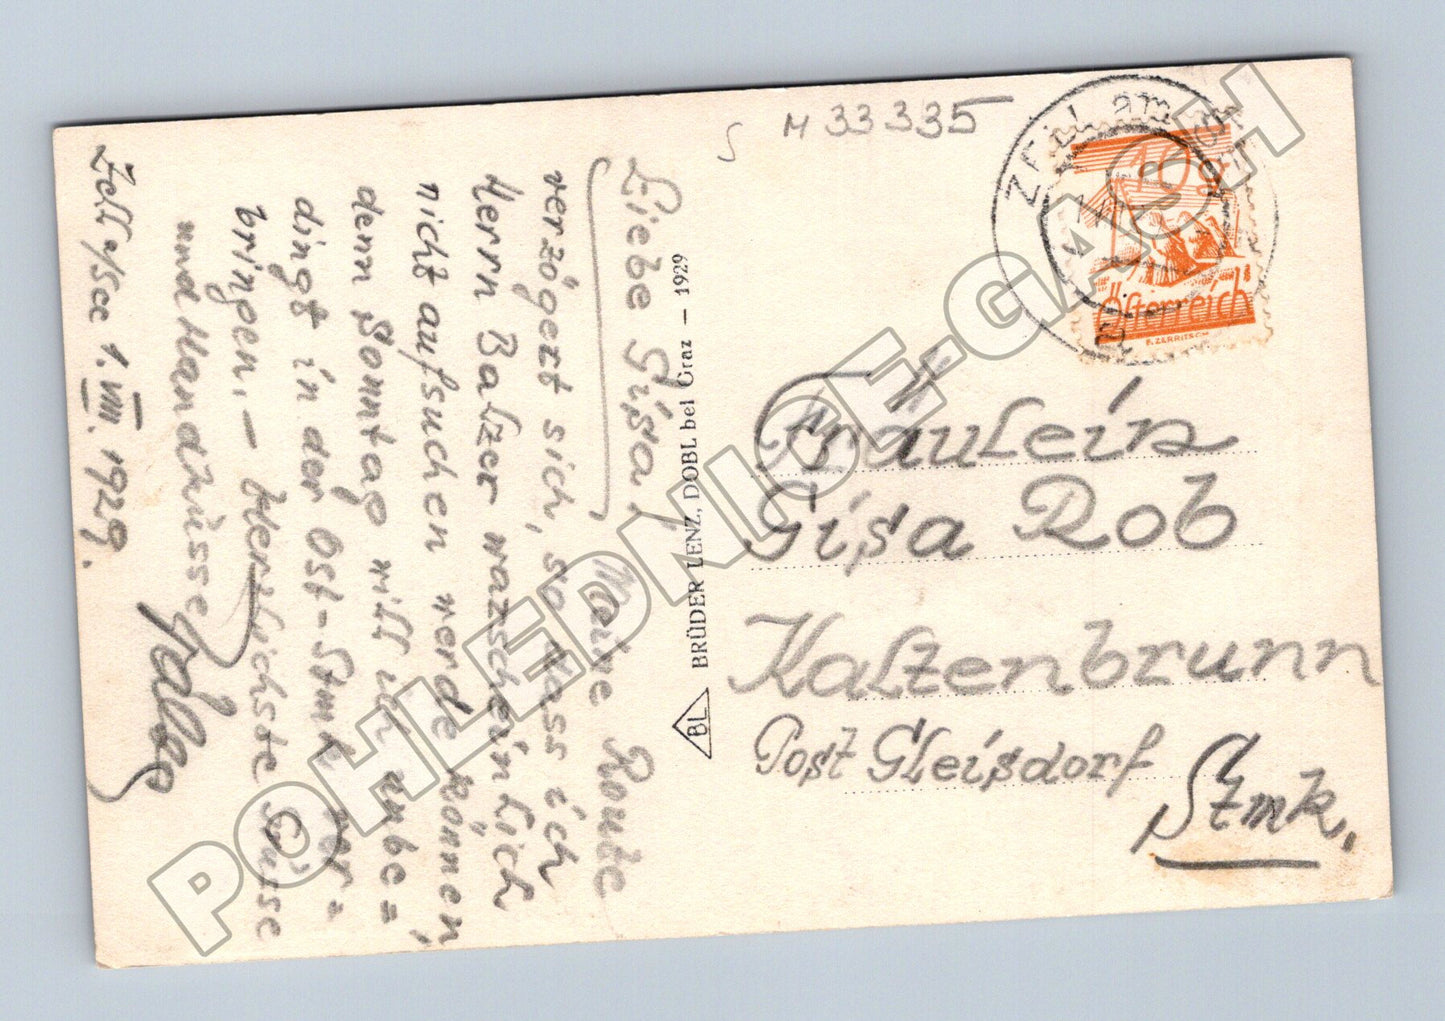 M 33335
ZELL am
10g
Österreich
F. ZERRITSCH
Liebe Gisa! Meine Route
verzögert sich, so dass ich
Herrn Balzer warscheinlich
nicht aufsuchen werde können,
denn Sonntag will ich unbe=
dingt in der Ost-Stmk ver=
bringen. – Herzlichste Grüsse
und Handküsse
Zell a/See 1. VIII. 1929.
BL BRÜDER LENZ, DOBL bei Graz – 1929
Fräulein
Gisa Rob
Kaltenbrunn
Post Gleisdorf
Stmk.
POHLEDNICE-GASCH